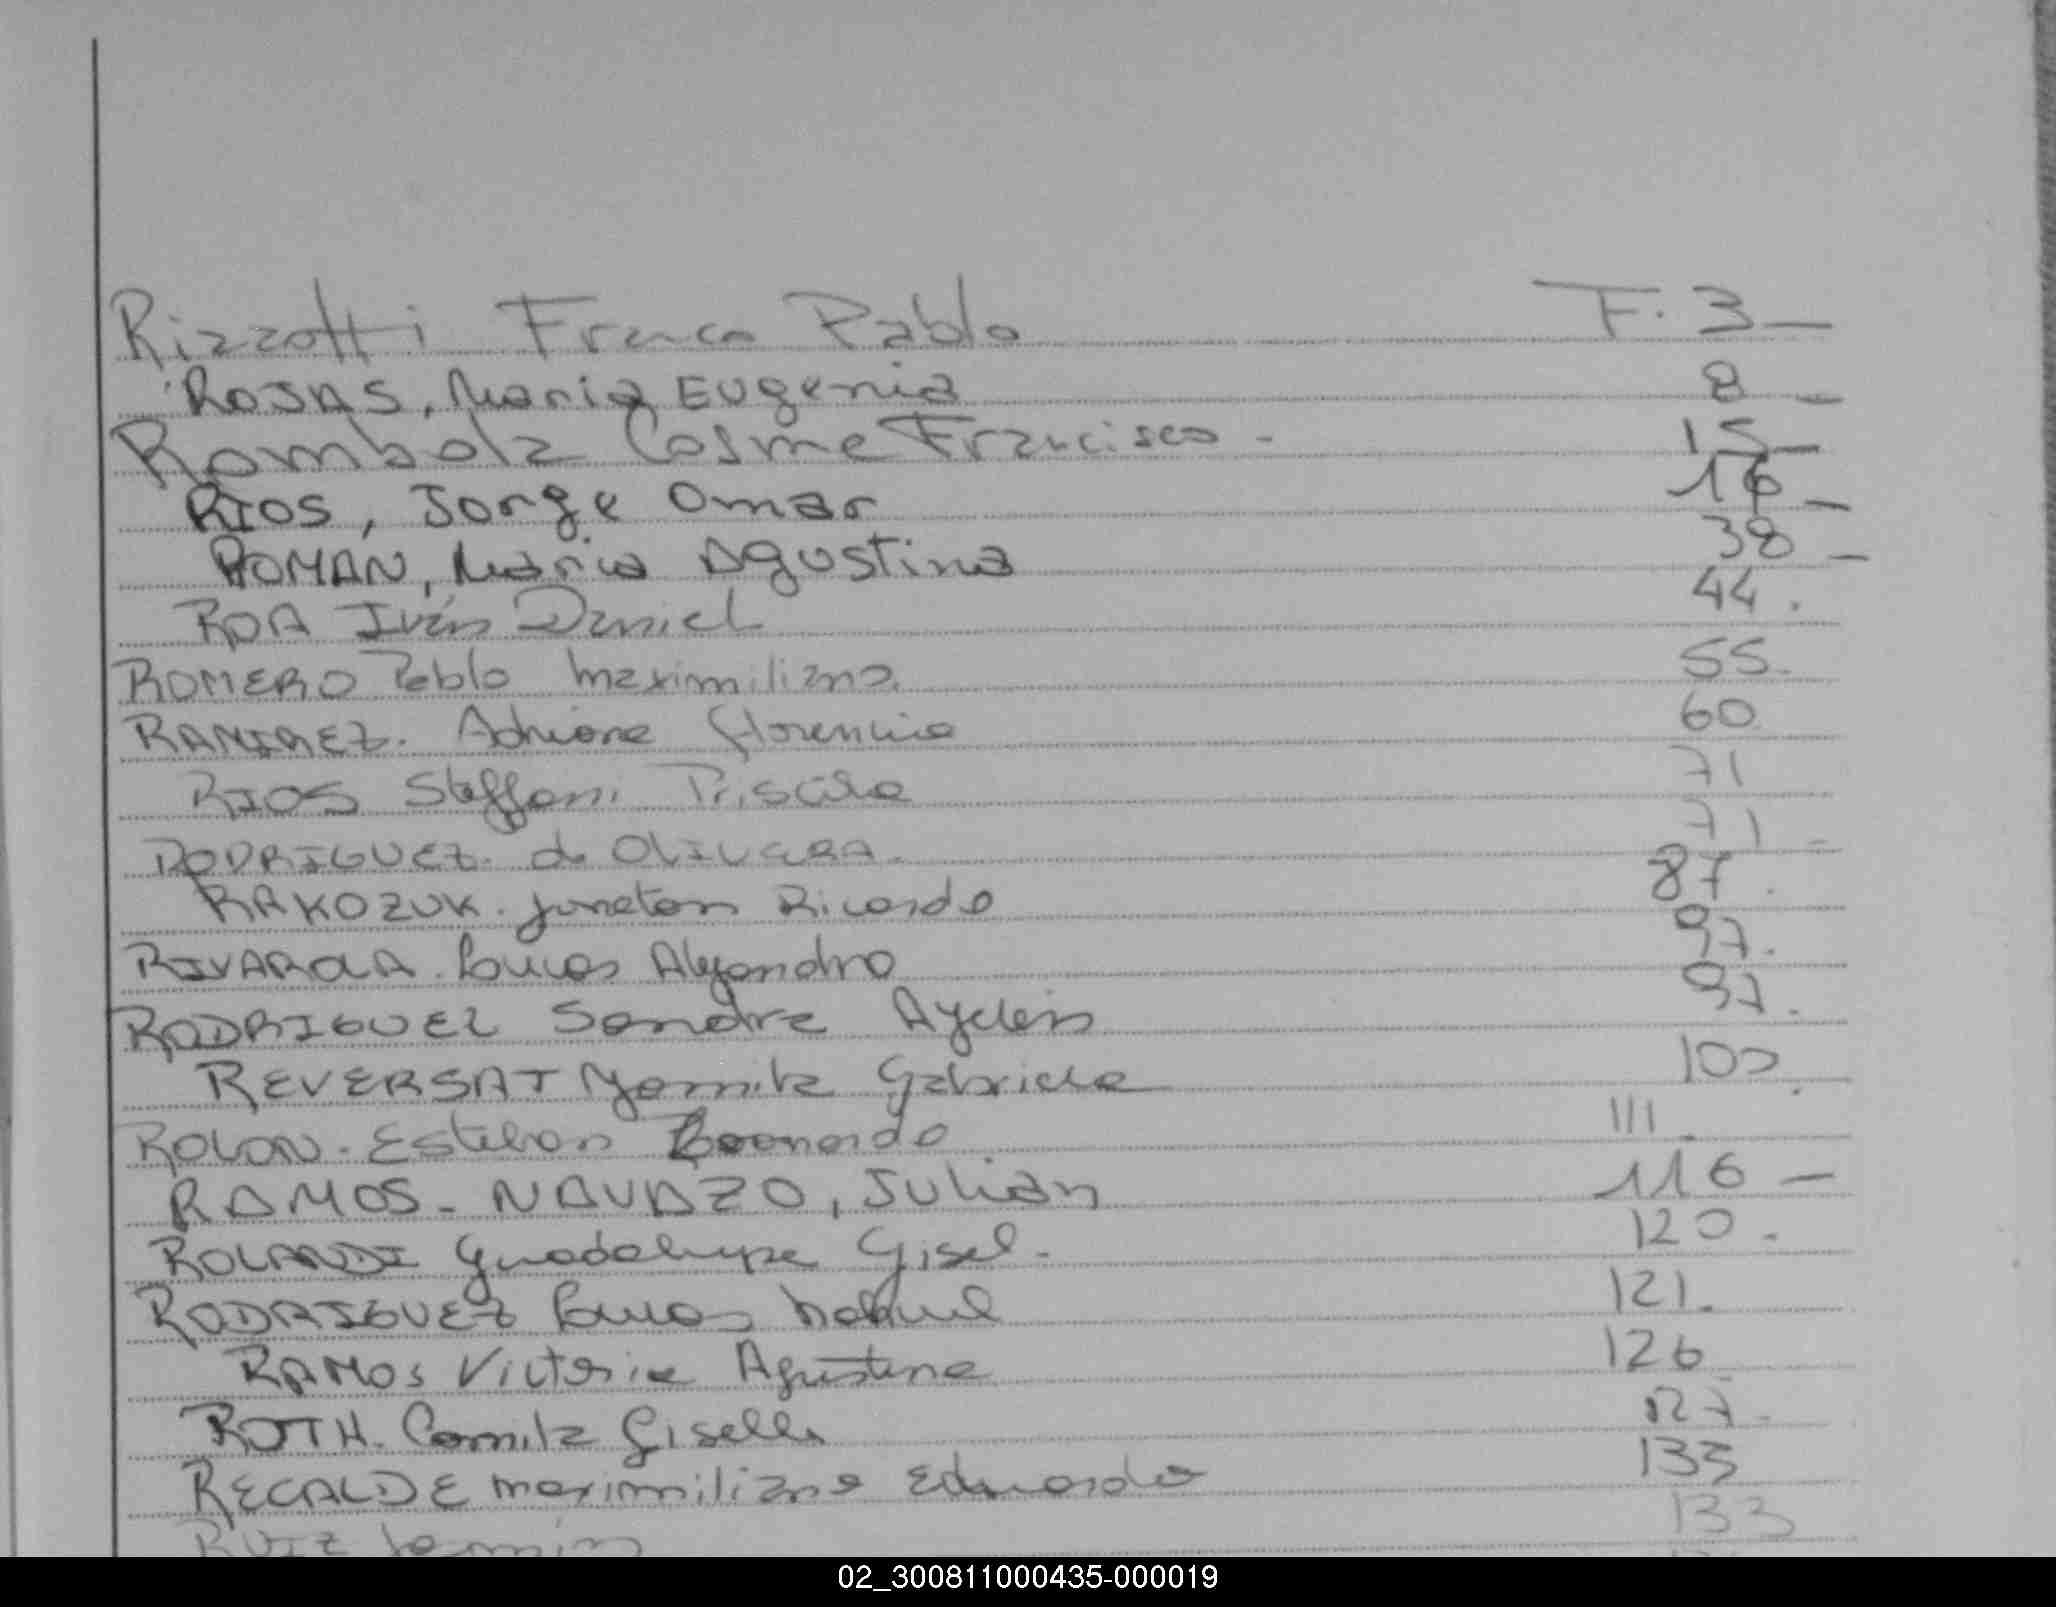 Rizzotti Franco Pablo F. 3 —
ROJAS, Maria Eugenia 8 —
Rombola Cosme Francisco - 15 —
RIOS, Jorge Omar 16 —
ROMAN, Maria Agustina 38 —
ROA Iván Daniel 44.
ROMERO Pablo Maximiliano. 55.
RAMIREZ. Adriana Florencia 60
RIOS Steffani Priscila 71
RODRIGUEZ. de OLIVERA. 71 -
RAKOZUK. Jonatan Ricardo 87.
RIVAROLA. Lucas Alejandro 97.
RODRIGUEZ Sandra Aylén 97.
REVERSAT Yamila Gabriela 100.
ROLON. Esteban Leonardo 111.
RAMOS - NAVAZO, Julián 116 —
ROLANDI Guadalupe Gisel. 120.
RODRIGUEZ Lucas Nahuel 121.
RAMOS Victoria Agustina 126
ROTH. Camila Gisella 127.
RECALDE Maximiliano Eduardo 133
RUIZ 133
02_300811000435-000019